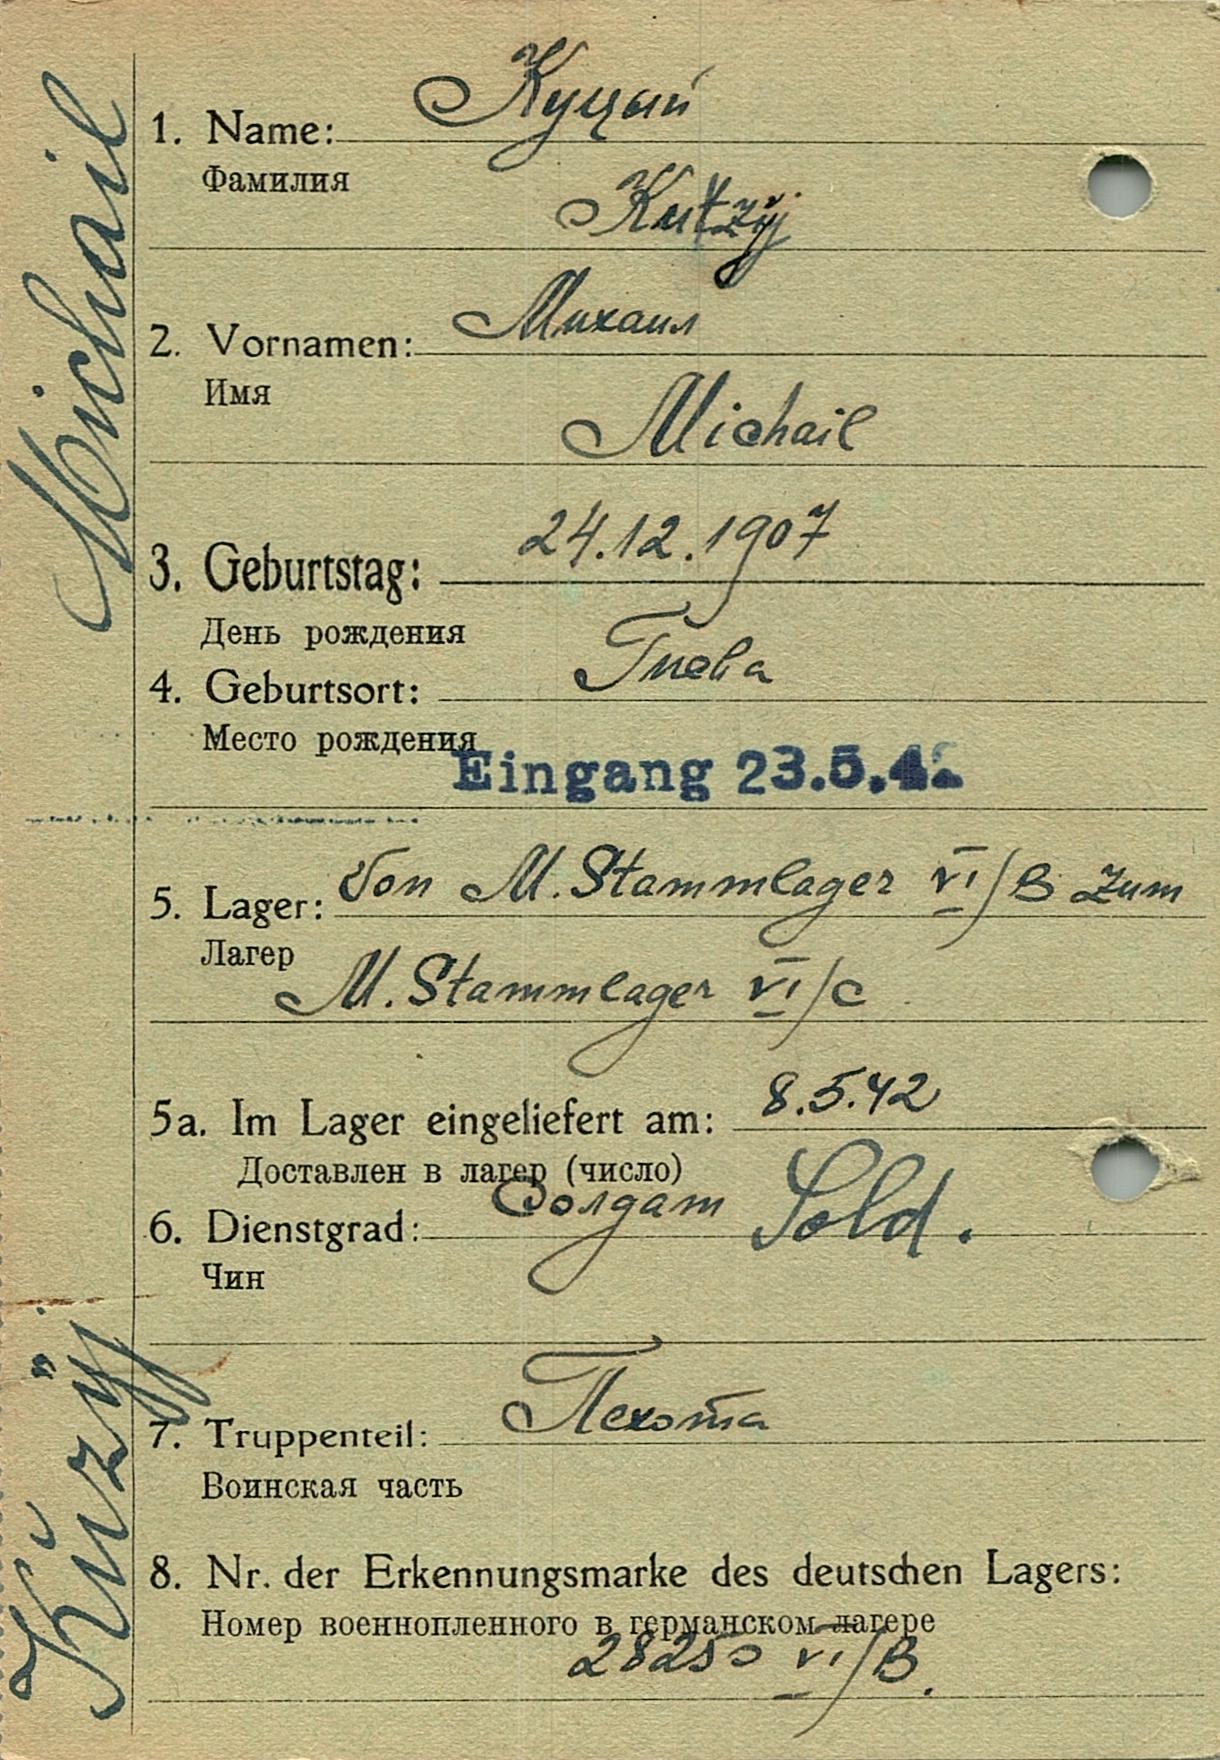 Michail
Kuzÿj
1. Name: Куцый
Фамилия
Kutzyj
2. Vornamen: Михаил
Имя
Michail
3. Geburtstag: 24.12.1907
День рождения
4. Geburtsort: Гнева
Место рождения
Eingang 23.5.42
5. Lager: Von M. Stammlager VI/B zum
Лагер
M. Stammlager VI/C
5a. Im Lager eingeliefert am: 8.5.42
Доставлен в лагер (число)
6. Dienstgrad: Солдат Sold.
Чин
7. Truppenteil: Пехота
Воинская часть
8. Nr. der Erkennungsmarke des deutschen Lagers:
Номер военнопленного в германском лагере
28250 VI/B.